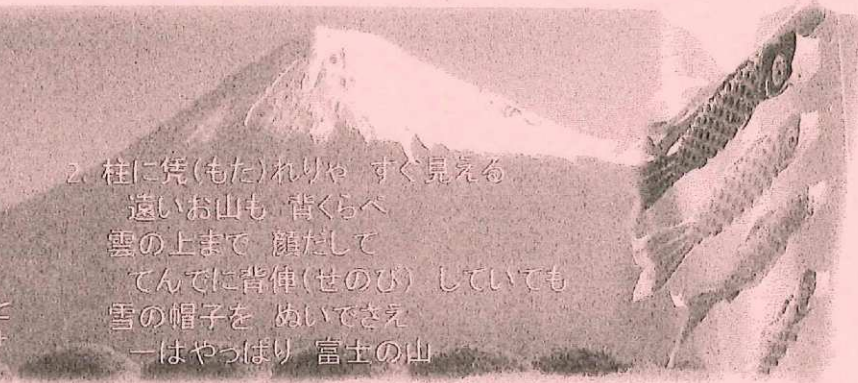 2. 柱に凭(もた)れりゃ すぐ見える
遠いお山も 背くらべ
雲の上まで 顔だして
てんでに背伸(せのび) していても
雪の帽子を ぬいでさえ
一はやっぱり 富士の山